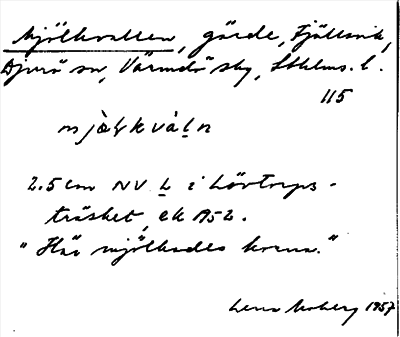 Mjölkvallen, gärde, Fjällsvik,
Djurö sn, Värmdö skg, Sthlms. l.
115
mjὰlkvὰln
2.5 cm NV L i Lövtorps-
träsket, ek A52.
"Här mjölkades korna."
Lena Moberg 1957